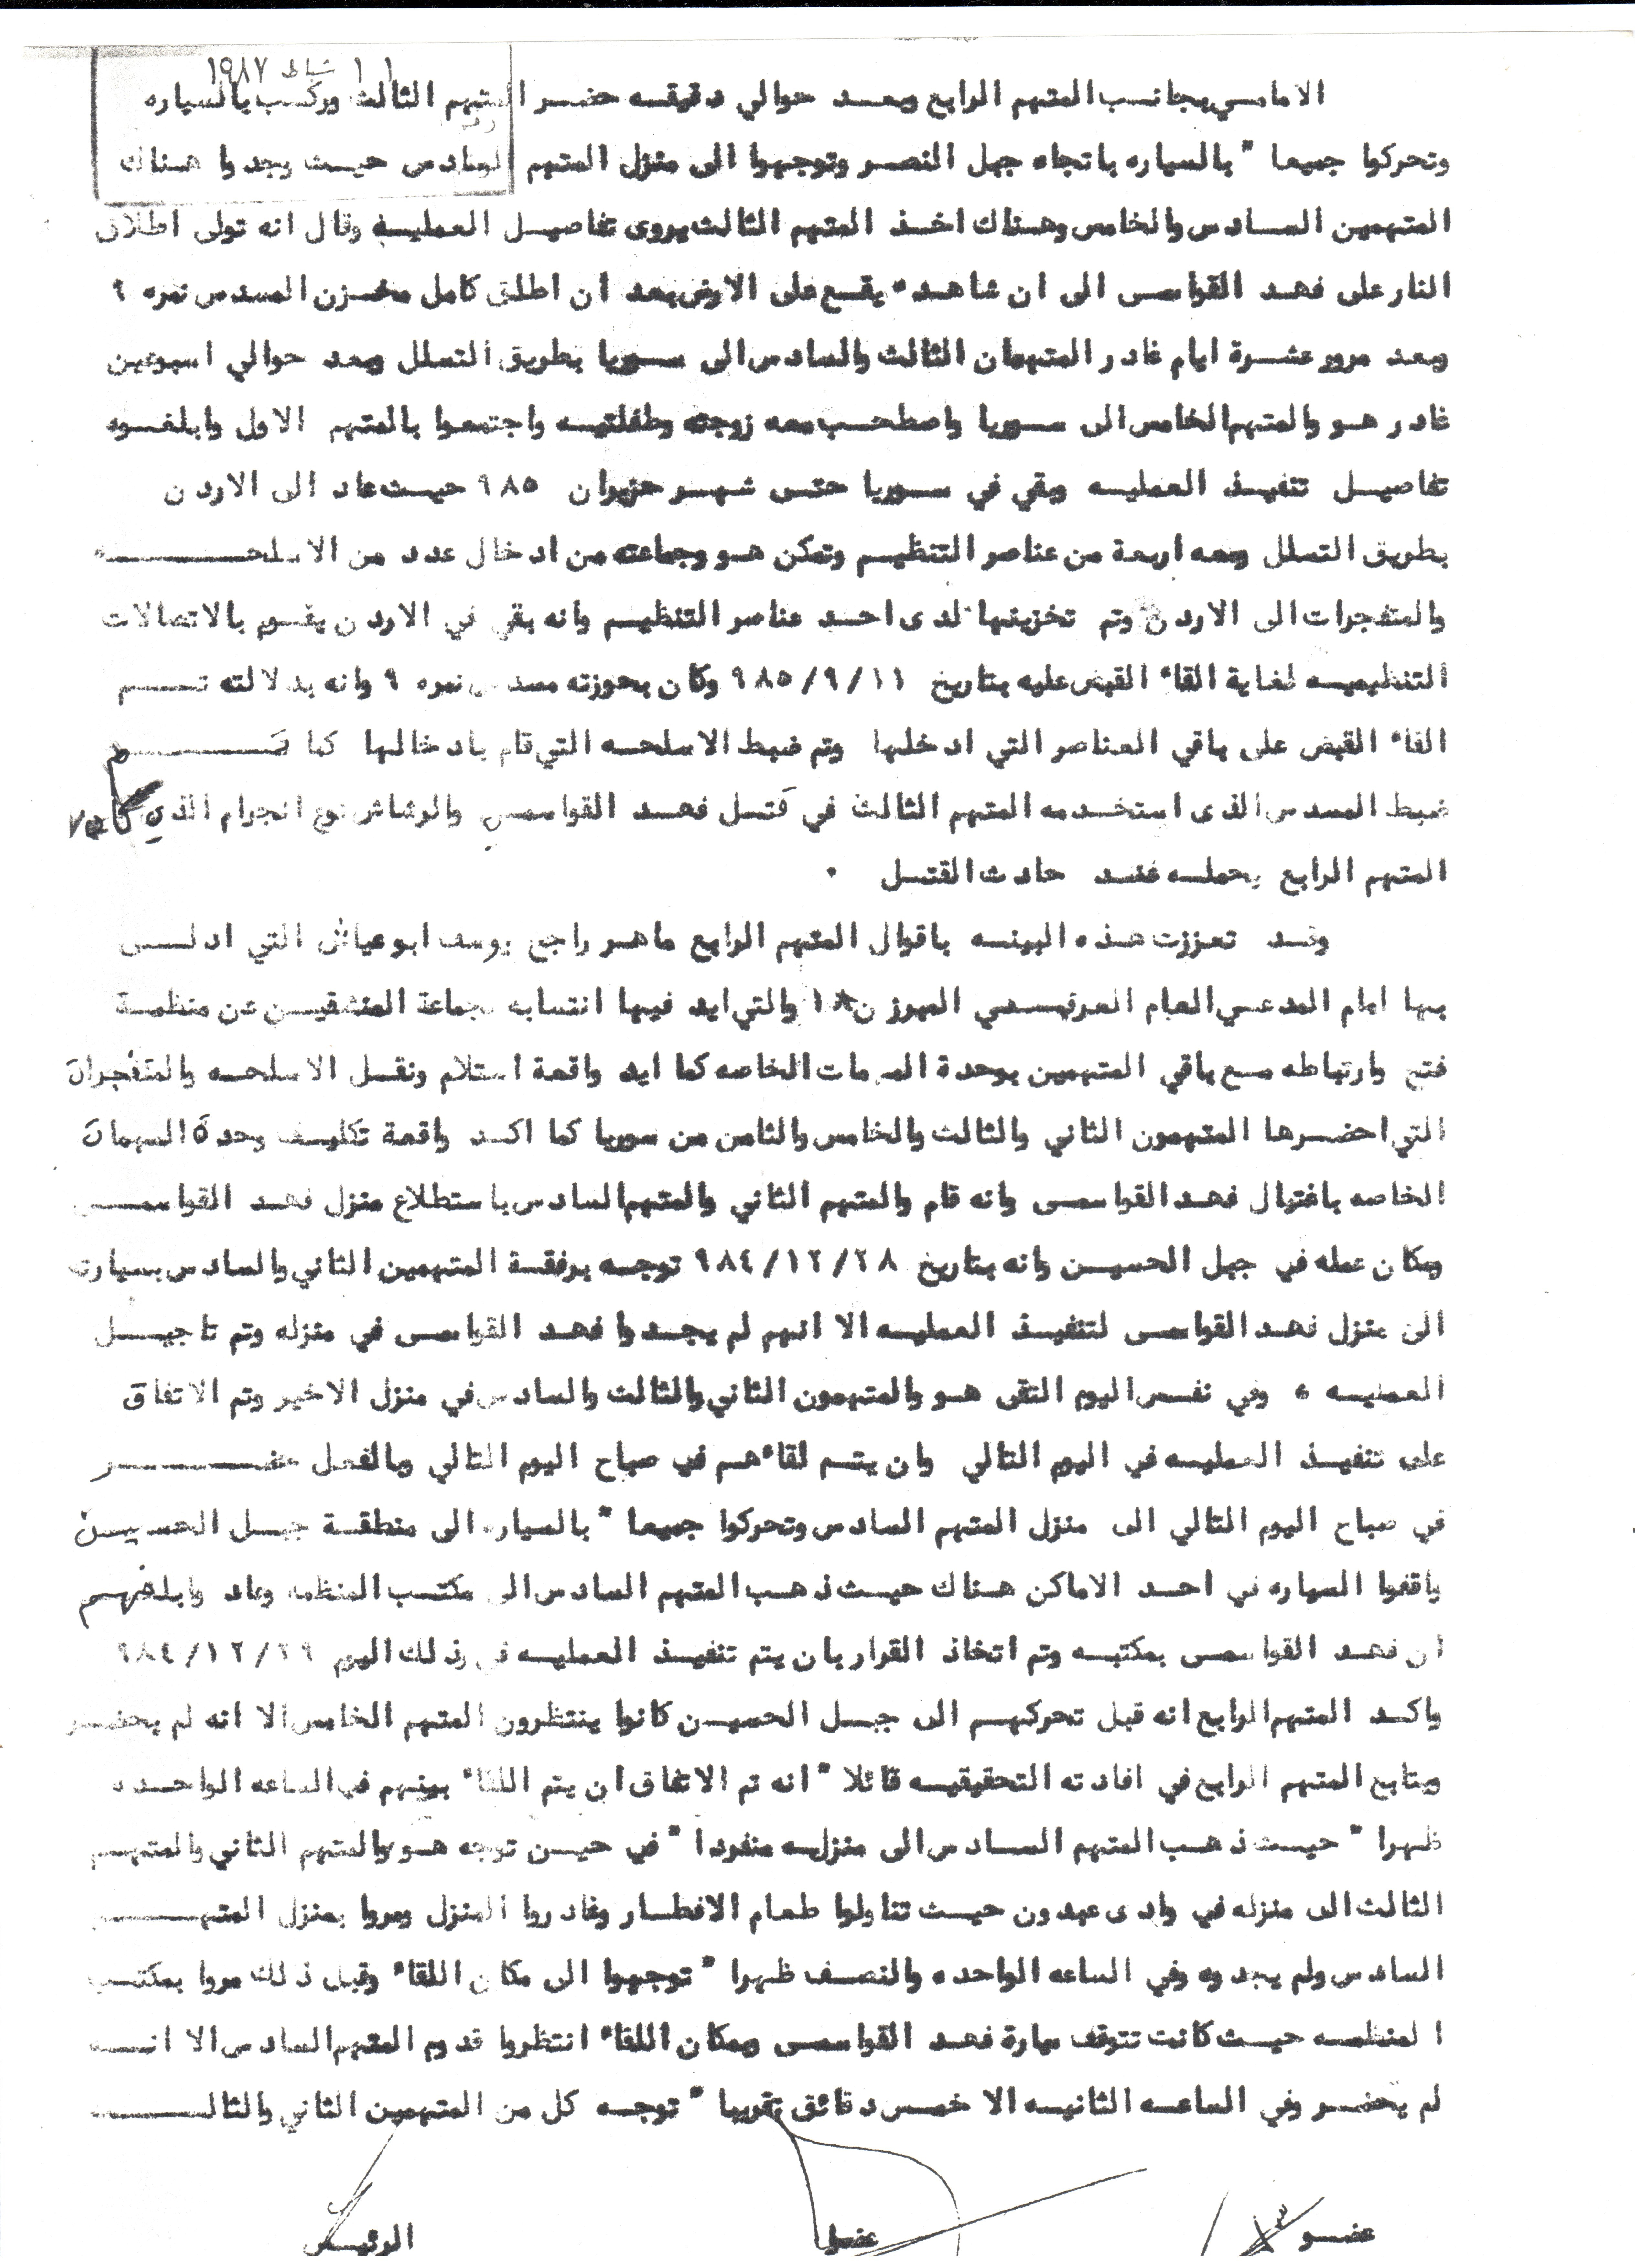 ١١ شباط ١٩٨٧
الامامي بجانب المتهم الرابع وبعد حوالي دقيقه حضر المتهم الثالث وركب بالسياره
وتحركوا جميعا " بالسياره باتجاه جبل النصر وتوجهوا الى منزل المتهم السادس حيث وجدوا هناك
المتهمين السادس والخامس وهناك اخذ المتهم الثالث يروى تفاصيل العمليه وقال انه تولى اطلاق
النار على فهد القواسمى الى ان شاهده يقع على الارض بعد ان اطلق كامل مخزن المسدس نمره ٩
وبعد مرور عشرة ايام غادر المتهمان الثالث والسادس الى سوريا بطريق التسلل وبعد حوالي اسبوعين
غادر هو والمتهم الخامس الى سوريا واصطحب معه زوجته وطفلتيه واجتمعوا بالمتهم الاول وابلغوه
تفاصيل تنفيذ العمليه وبقي في سوريا حتى شهر حزيران ٩٨٥ حيث عاد الى الاردن
بطريق التسلل ومعه اربعة من عناصر التنظيم وتمكن هو وجماعته من ادخال عدد من الاسلحـــــه
والمتفجرات الى الاردن وتم تخزينها لدى احد عناصر التنظيم وانه بقي في الاردن يقوم بالاتصالات
التنظيميه لغاية القاء القبض عليه بتاريخ ٩٨٥/٩/١١ وكان بحوزته مسدس نمره ٩ وانه بدلالته تـــم
القاء القبض على باقي العناصر التي ادخلها وتم ضبط الاسلحه التي قام بادخالها كما تـــــم
ضبط المسدس الذى استخدمه المتهم الثالث في قتل فهد القواسمي والرشاش نوع انجرام الذي كان
المتهم الرابع يحمله عند حادث القتل .
وقد تعززت هذه البينه باقوال المتهم الرابع ماهر راجح يوسف ابو عياش التي ادلـــى
بها امام المدعي العام العرفي المبرز ن/١٨ والتي ايد فيها انتسابه لجماعة المنشقين عن منظمة
فتح وارتباطه مع باقي المتهمين بوحدة المهمات الخاصه كما ايد واقعة استلام ونقل الاسلحه والمتفجرات
التي احضرها المتهمون الثاني والثالث والخامس والثامن من سوريا كما اكد واقعة تكليف وحدة المهمات
الخاصه باغتيال فهد القواسمى وانه قام والمتهم الثاني والمتهم السادس باستطلاع منزل فهد القواسمـــى
ومكان عمله في جبل الحسين وانه بتاريخ ٩٨٤/١٢/٢٨ توجه برفقة المتهمين الثاني والسادس بسيارته
الى منزل فهد القواسمى لتنفيذ العمليه الا انهم لم يجدوا فهد القواسمى في منزله وتم تاجيـــل
العمليه ، وفي نفس اليوم التقى هو والمتهمون الثاني والثالث والسادس في منزل الاخير وتم الاتفاق
على تنفيذ العمليه في اليوم التالي وان يتم لقاءهم في صباح اليوم التالي وبالفعل حضـــــر
في صباح اليوم التالي الى منزل المتهم السادس وتحركوا جميعا " بالسياره الى منطقة جبل الحسين
واقفوا السياره في احد الاماكن هناك حيث ذهب المتهم السادس الى مكتب المنظمه وعاد وابلغهم
ان فهد القواسمى بمكتبه وتم اتخاذ القرار بان يتم تنفيذ العمليه في ذلك اليوم ٩٨٤/١٢/٢٩
واكد المتهم الرابع انه قبل تحركهم الى جبل الحسين كانوا ينتظرون المتهم الخامس الا انه لم يحضر
ويتابع المتهم الرابع في افادته التحقيقيه قائلا " انه تم الاتفاق ان يتم اللقاء بينهم في الساعه الواحده
ظهرا " حيث ذهب المتهم السادس الى منزله منفردا " في حين توجه هو والمتهم الثاني والمتهـــم
الثالث الى منزله في وادى عبدون حيث تناولوا طعام الافطار وغادروا المنزل ومروا بمنزل المتهـــم
السادس ولم يجدوه وفي الساعه الواحده والنصف ظهرا " توجهوا الى مكان اللقاء وقبل ذلك مروا بمكتب
المنظمه حيث كانت تتوقف سيارة فهد القواسمى وبمكان اللقاء انتظروا قدوم المتهم السادس الا انـــه
لم يحضر وفي الساعه الثانيه الا خمس دقائق تقريبا " توجه كل من المتهمين الثاني والثالـــــث
عضو عضو الرئيس